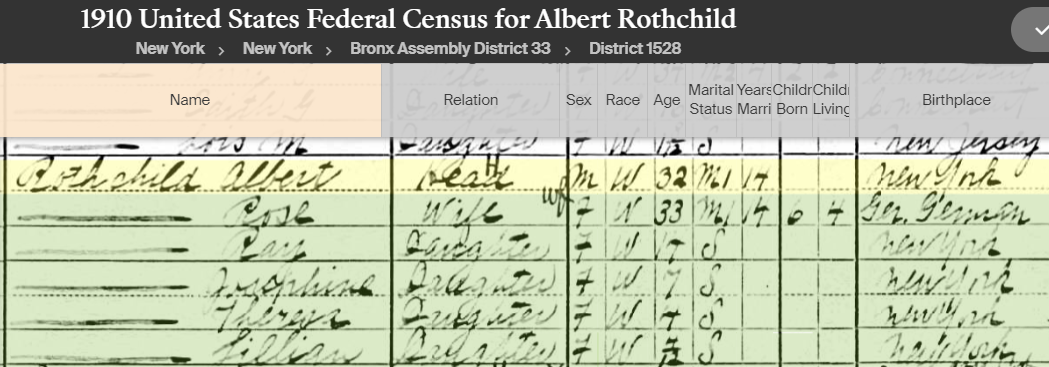 1910 United States Federal Census for Albert Rothchild
New York > New York > Bronx Assembly District 33 > District 1528
Name Relation Sex Race Age Marital Status Years Marri Childr Born Childr Living Birthplace
Lois M Daughter F W S New Jersey
Rothchild Albert Head M W 32 M1 14 New York
wf
Rose Wife F W 33 M1 14 6 4 Ger. German
Ray Daughter F W S New York
Josephine Daughter F W 7 S New York
Theresa Daughter F W 4 S New York
Lillian Daughter F W 7/12 S New York